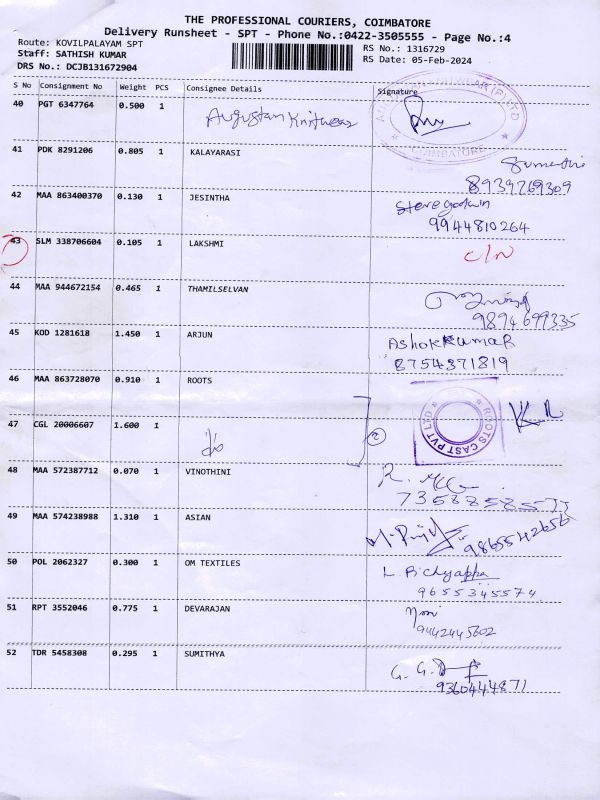 THE PROFESSIONAL COURIERS, COIMBATORE
Delivery Runsheet - SPT - Phone No.:0422-3505555 - Page No.:4
Route: KOVILPALAYAM SPT
Staff: SATHISH KUMAR
DRS No.: DCJB131672904
RS No.: 1316729
RS Date: 05-Feb-2024
S No Consignment No Weight PCS Consignee Details Signature
40 PGT 6347764 0.500 1 Augustan Knitwear
COIMBATORE
41 PDK 8291206 0.805 1 KALAYARASI
8939769309
42 MAA 863400370 0.130 1 JESINTHA Steve godwin
9944810264
43 SLM 338706604 0.105 1 LAKSHMI C/N
44 MAA 944672154 0.465 1 THAMILSELVAN
9894699335
45 KOD 1281618 1.450 1 ARJUN Ashokkumar
8754371819
46 MAA 863728070 0.910 1 ROOTS
ROOTS CAST PVT LTD
47 CGL 20006607 1.600 1 do 2
48 MAA 572387712 0.070 1 VINOTHINI
49 MAA 574238988 1.310 1 ASIAN
9865542656
50 POL 2062327 0.300 1 OM TEXTILES L. Pichyappa
9655345574
51 RPT 3552046 0.775 1 DEVARAJAN
9442445602
52 TDR 5458308 0.295 1 SUMITHYA
9360444871